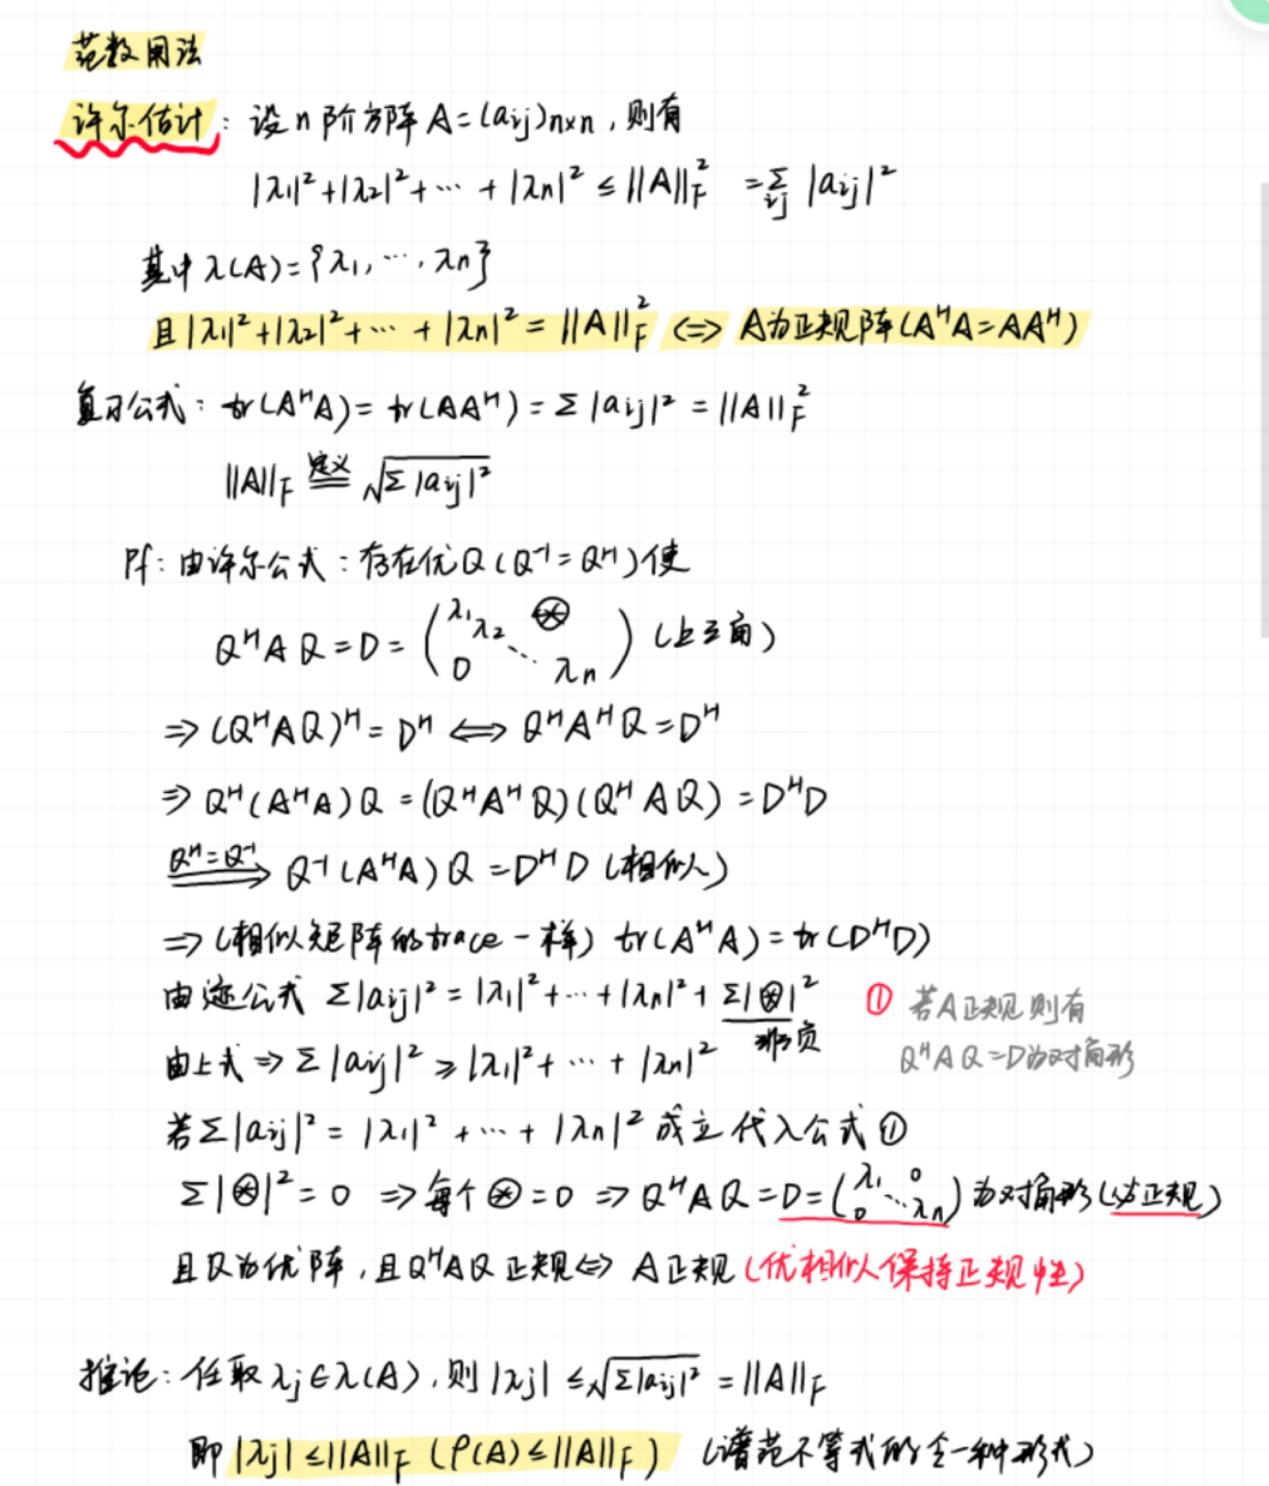 范数用法
许尔估计：设n阶方阵A=(aij)n×n，则有
|λ1|²+|λ2|²+…+|λn|² ≤ ||A||²F = Σij |aij|²
其中λ(A)={λ1,…,λn}
且|λ1|²+|λ2|²+…+|λn|²=||A||²F ⟺ A为正规阵(AᴴA=AAᴴ)
复习公式：tr(AᴴA)=tr(AAᴴ)=Σ|aij|²=||A||²F
||A||F 定义 √Σ|aij|²
Pf：由许尔公式：存在优Q(Q⁻¹=Qᴴ)使
QᴴAQ=D=(λ1 λ2 ⊗ 0 ⋱ λn)(上三角)
⇒(QᴴAQ)ᴴ=Dᴴ⟺QᴴAᴴQ=Dᴴ
⇒Qᴴ(AᴴA)Q=(QᴴAᴴQ)(QᴴAQ)=DᴴD
Qᴴ=Q⁻¹⇒Q⁻¹(AᴴA)Q=DᴴD(相似)
⇒(相似矩阵的trace一样)tr(AᴴA)=tr(DᴴD)
由迹公式 Σ|aij|²=|λ1|²+…+|λn|²+Σ|⊗|² ① 若A正规则有
非负 QᴴAQ=D为对角形
由上式⇒Σ|aij|²≥|λ1|²+…+|λn|²
若Σ|aij|²=|λ1|²+…+|λn|²成立代入公式①
Σ|⊗|²=0⇒每个⊗=0⇒QᴴAQ=D=(λ1 0 0 ⋱ λn)为对角形(必正规)
且Q为优阵，且QᴴAQ正规⟺A正规(优相似保持正规性)
推论：任取λj∈λ(A)，则|λj|≤√Σ|aij|²=||A||F
即|λj|≤||A||F(ρ(A)≤||A||F)(谱范不等式的令一种形式)